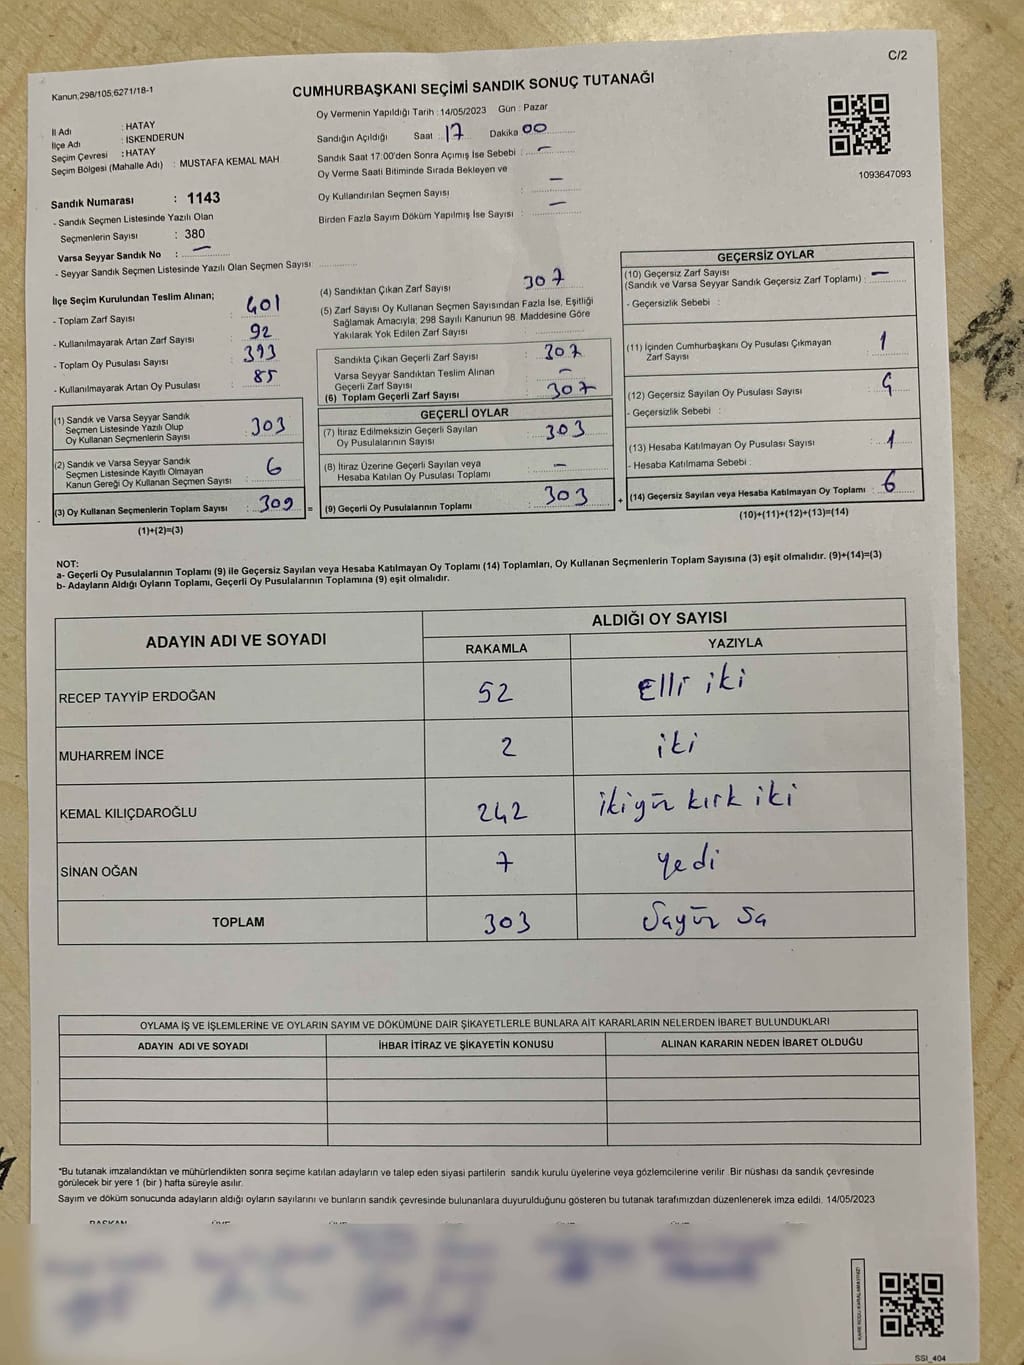 C/2
Kanun,298/105,6271/18-1
CUMHURBAŞKANI SEÇİMİ SANDIK SONUÇ TUTANAĞI
İl Adı : HATAY
İlçe Adı : İSKENDERUN
Seçim Çevresi : HATAY
Seçim Bölgesi (Mahalle Adı) : MUSTAFA KEMAL MAH
Oy Vermenin Yapıldığı Tarih : 14/05/2023 Gün : Pazar
Sandığın Açıldığı Saat : 17 Dakika 00
Sandık Saat 17:00'den Sonra Açımış İse Sebebi : —
Oy Verme Saati Bitiminde Sırada Bekleyen ve
Oy Kullandırılan Seçmen Sayısı : —
Birden Fazla Sayım Döküm Yapılmış İse Sayısı : —
1093647093
Sandık Numarası : 1143
- Sandık Seçmen Listesinde Yazılı Olan
Seçmenlerin Sayısı : 380
Varsa Seyyar Sandık No : —
- Seyyar Sandık Seçmen Listesinde Yazılı Olan Seçmen Sayısı :
İlçe Seçim Kurulundan Teslim Alınan;
- Toplam Zarf Sayısı : 401
- Kullanılmayarak Artan Zarf Sayısı : 92
- Toplam Oy Pusulası Sayısı : 393
- Kullanılmayarak Artan Oy Pusulası : 85
(1) Sandık ve Varsa Seyyar Sandık
Seçmen Listesinde Yazılı Olup
Oy Kullanan Seçmenlerin Sayısı : 303
(2) Sandık ve Varsa Seyyar Sandık
Seçmen Listesinde Kayıtlı Olmayan
Kanun Gereği Oy Kullanan Seçmen Sayısı : 6
(3) Oy Kullanan Seçmenlerin Toplam Sayısı : 309 =
(1)+(2)=(3)
(4) Sandıktan Çıkan Zarf Sayısı : 307
(5) Zarf Sayısı Oy Kullanan Seçmen Sayısından Fazla İse, Eşitliği
Sağlamak Amacıyla; 298 Sayılı Kanunun 98. Maddesine Göre
Yakılarak Yok Edilen Zarf Sayısı :
Sandıkta Çıkan Geçerli Zarf Sayısı : 307
Varsa Seyyar Sandıktan Teslim Alınan
Geçerli Zarf Sayısı : —
(6) Toplam Geçerli Zarf Sayısı : 307
GEÇERLİ OYLAR
(7) İtiraz Edilmeksizin Geçerli Sayılan
Oy Pusulalarının Sayısı : 303
(8) İtiraz Üzerine Geçerli Sayılan veya
Hesaba Katılan Oy Pusulası Toplamı : —
(9) Geçerli Oy Pusulalarının Toplamı : 303 +
GEÇERSİZ OYLAR
(10) Geçersiz Zarf Sayısı
(Sandık ve Varsa Seyyar Sandık Geçersiz Zarf Toplamı) : —
- Geçersizlik Sebebi :
(11) İçinden Cumhurbaşkanı Oy Pusulası Çıkmayan
Zarf Sayısı : 1
(12) Geçersiz Sayılan Oy Pusulası Sayısı : 4
- Geçersizlik Sebebi :
(13) Hesaba Katılmayan Oy Pusulası Sayısı : 1
- Hesaba Katılmama Sebebi :
(14) Geçersiz Sayılan veya Hesaba Katılmayan Oy Toplamı : 6
(10)+(11)+(12)+(13)=(14)
NOT:
a- Geçerli Oy Pusulalarının Toplamı (9) ile Geçersiz Sayılan veya Hesaba Katılmayan Oy Toplamı (14) Toplamları, Oy Kullanan Seçmenlerin Toplam Sayısına (3) eşit olmalıdır. (9)+(14)=(3)
b- Adayların Aldığı Oyların Toplamı, Geçerli Oy Pusulalarının Toplamına (9) eşit olmalıdır.
ADAYIN ADI VE SOYADI
ALDIĞI OY SAYISI
RAKAMLA YAZIYLA
RECEP TAYYİP ERDOĞAN 52 Elli iki
MUHARREM İNCE 2 iki
KEMAL KILIÇDAROĞLU 242 ikiyüz kırk iki
SİNAN OĞAN 7 yedi
TOPLAM 303
OYLAMA İŞ VE İŞLEMLERİNE VE OYLARIN SAYIM VE DÖKÜMÜNE DAİR ŞİKAYETLERLE BUNLARA AİT KARARLARIN NELERDEN İBARET BULUNDUKLARI
ADAYIN ADI VE SOYADI İHBAR İTİRAZ VE ŞİKAYETİN KONUSU ALINAN KARARIN NEDEN İBARET OLDUĞU
*Bu tutanak imzalandıktan ve mühürlendikten sonra seçime katılan adayların ve talep eden siyasi partilerin sandık kurulu üyelerine veya gözlemcilerine verilir. Bir nüshası da sandık çevresinde
görülecek bir yere 1 (bir ) hafta süreyle asılır.
Sayım ve döküm sonucunda adayların aldığı oyların sayılarını ve bunların sandık çevresinde bulunanlara duyurulduğunu gösteren bu tutanak tarafımızdan düzenlenerek imza edildi. 14/05/2023
SSI_404